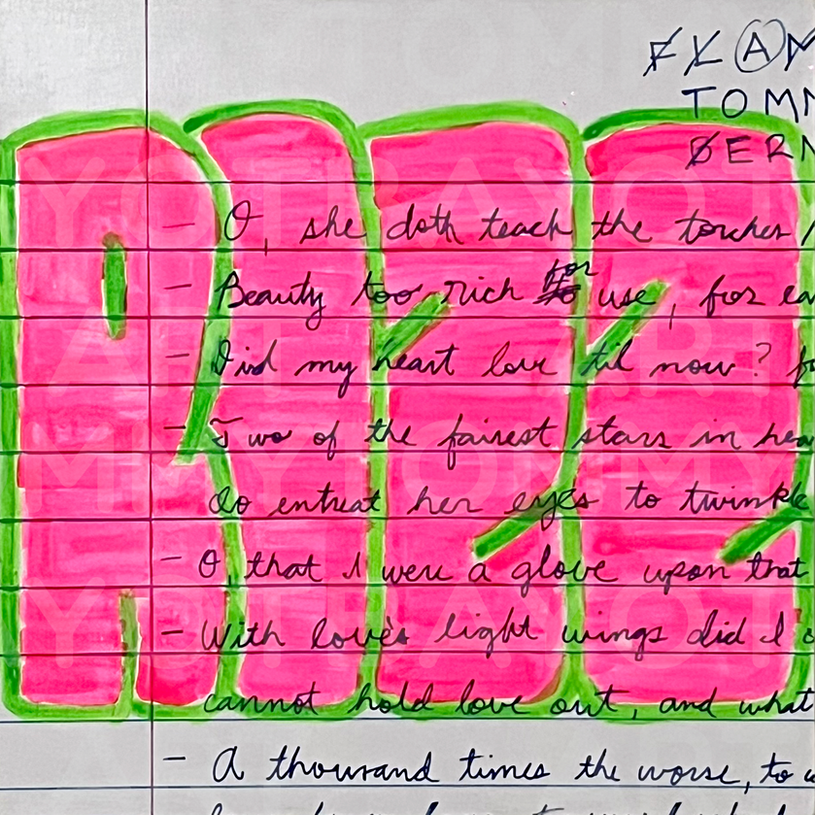 TOMM
BERN
- O, she doth teach the torches
- Beauty too rich for use, for ea
- Did my heart love til now? fo
- Two of the fairest stars in hea
do entreat her eyes to twinkle
- O, that I were a glove upon that
- With love's light wings did I o
cannot hold love out, and what
- A thousand times the worse, to w